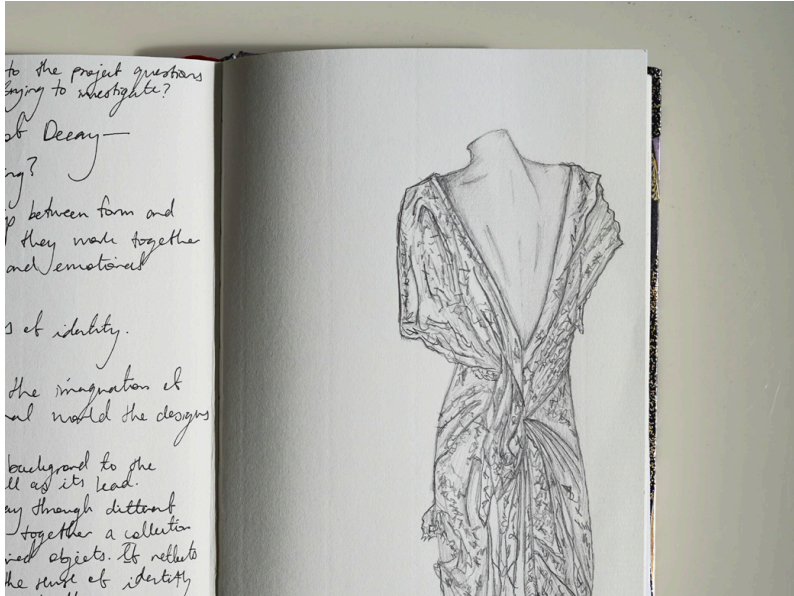 to the project questions
trying to investigate?
of Decay—
between form and
they work together
and emotional
of identity.
the imagination of
world the designs
background to the
as its lead.
through different
together a collection
objects. It reflects
the sense of identity